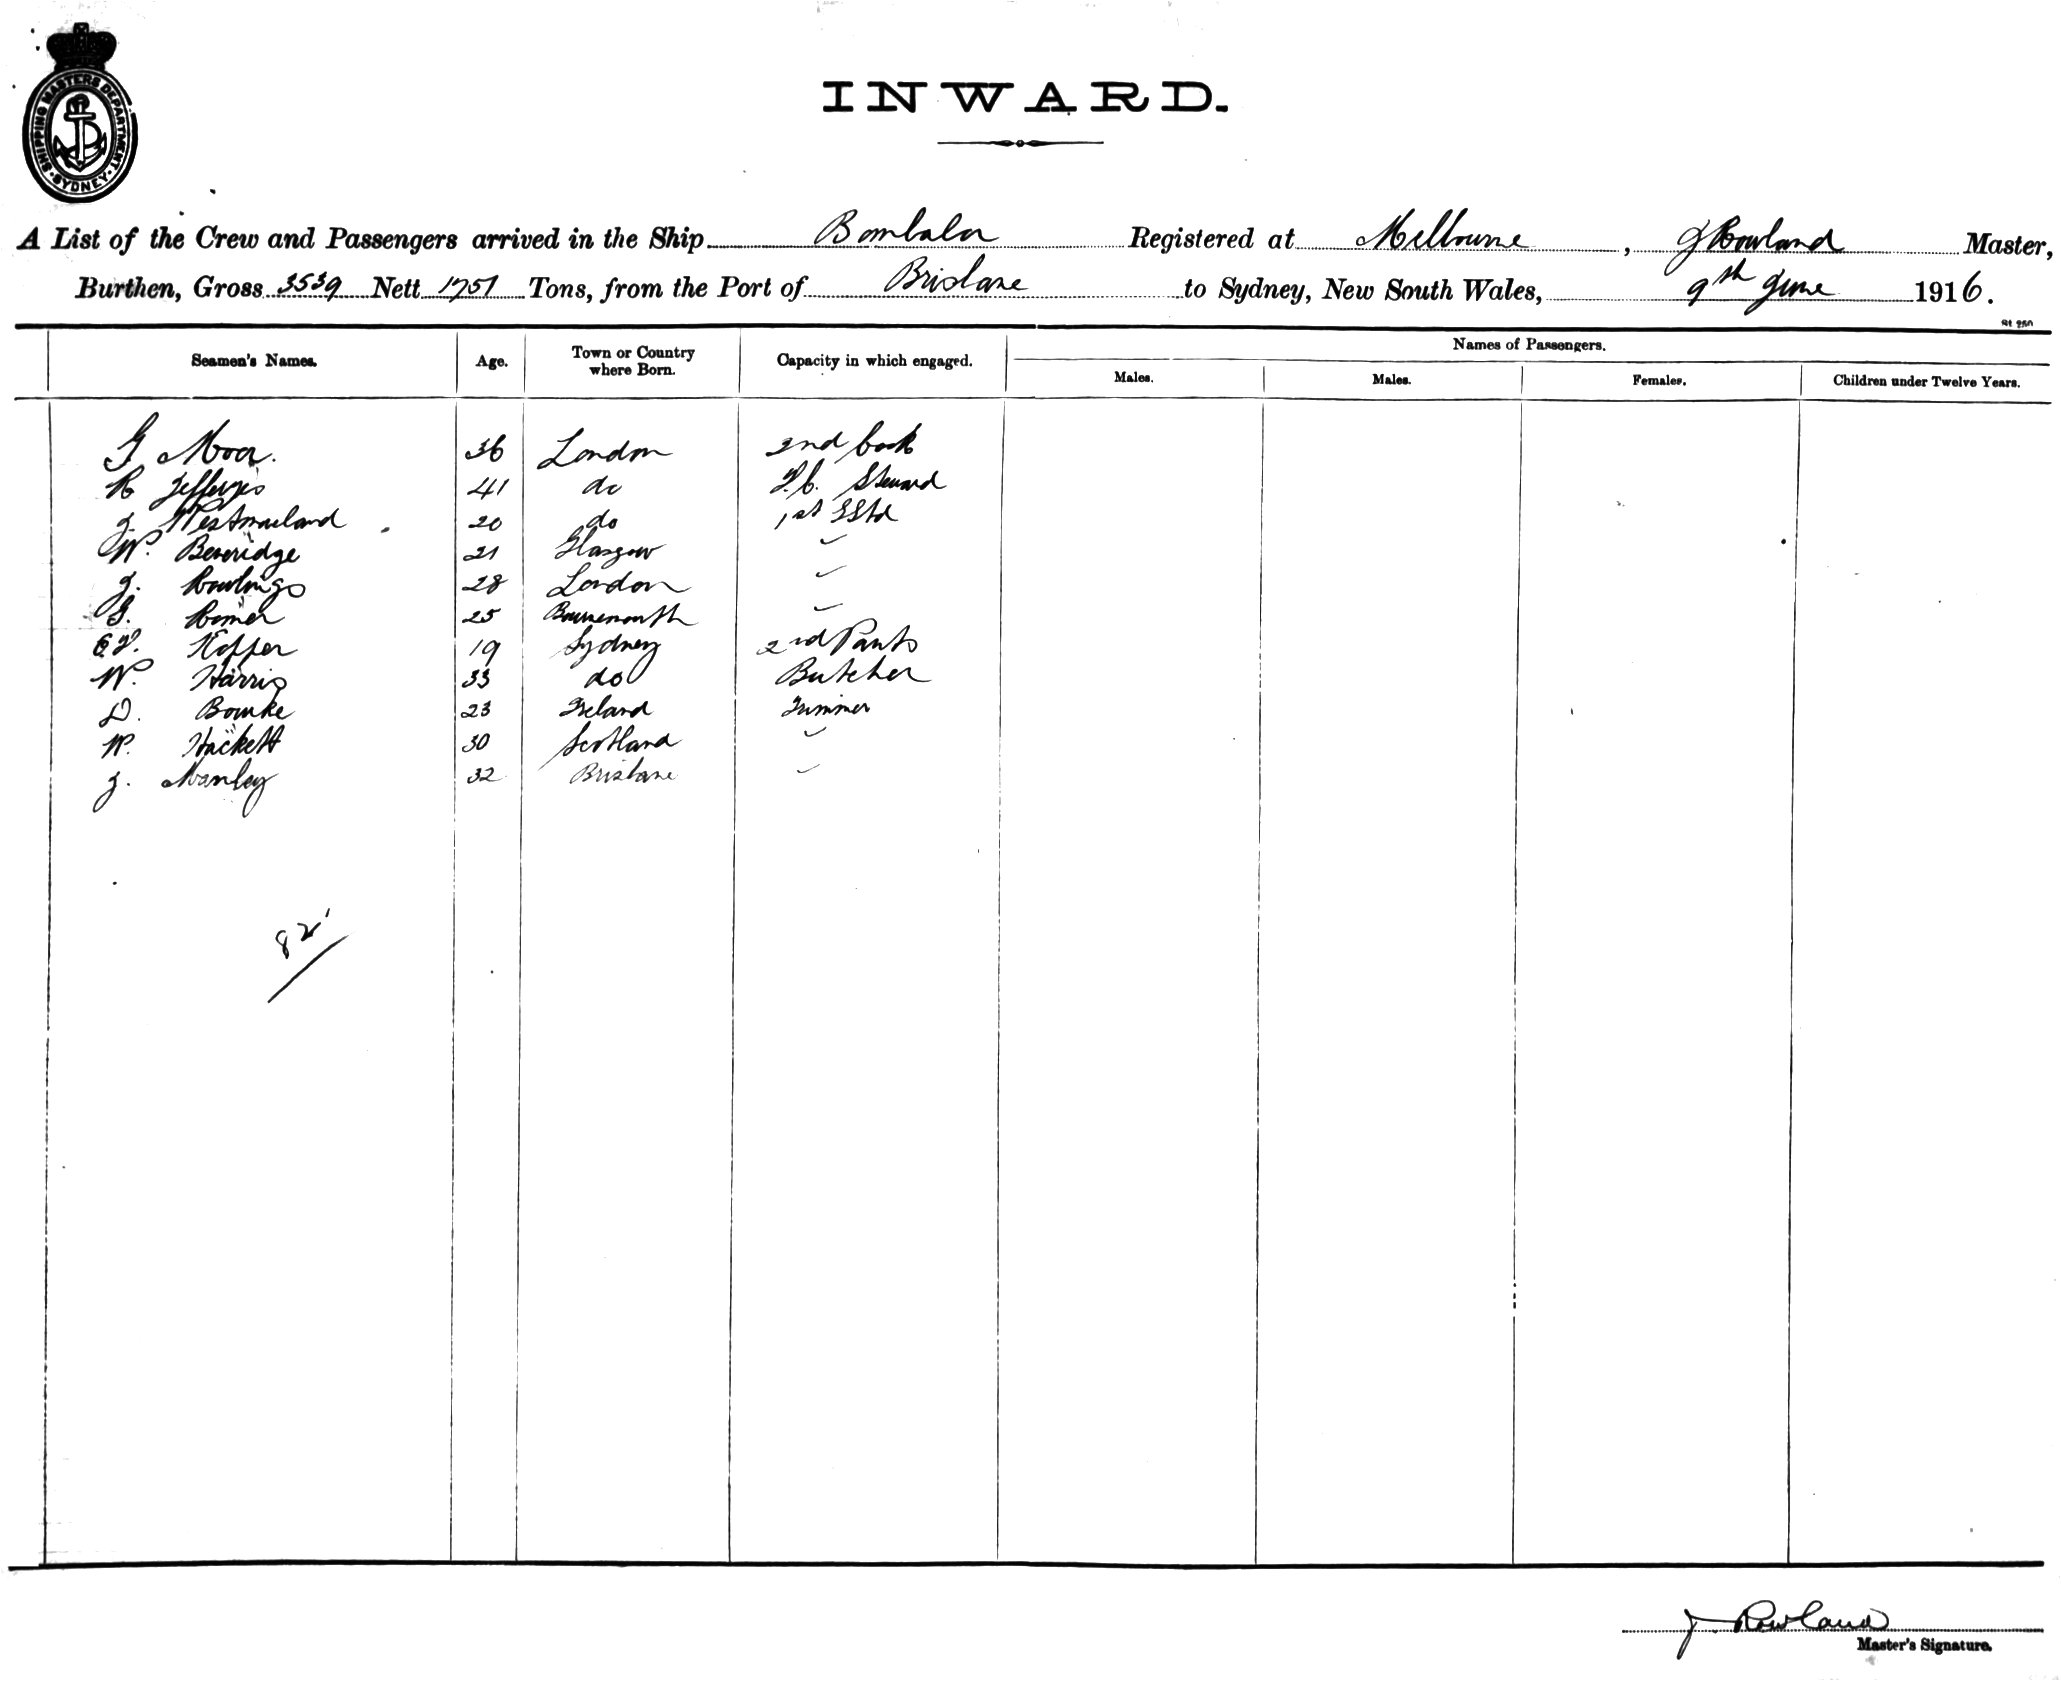 SHIPPING MASTERS DEPARTMENT
SYDNEY
INWARD.
A List of the Crew and Passengers arrived in the Ship Bombala Registered at Melbourne, J Rowland Master,
Burthen, Gross 3539 Nett 1751 Tons, from the Port of Brisbane to Sydney, New South Wales, 9th June 1916.
Seamen's Names. Age. Town or Country where Born. Capacity in which engaged. Names of Passengers.
Males. Males. Females. Children under Twelve Years.
G Moor. 36 London 2nd Cook
R Jefferies 41 do F.C. Steward
J. Westmorland 20 do 1st SStd
W. Beveridge 21 Glasgow "
J. Rowlings 28 London "
G. Romer 25 Bournemouth "
Hopper 19 Sydney 2nd Pants
W. Harris 33 do Butcher
D. Bourke 23 Ireland Trimmer
W. Hackett 30 Scotland "
J. Manley 32 Brisbane "
82
J. Rowland
Master's Signature.